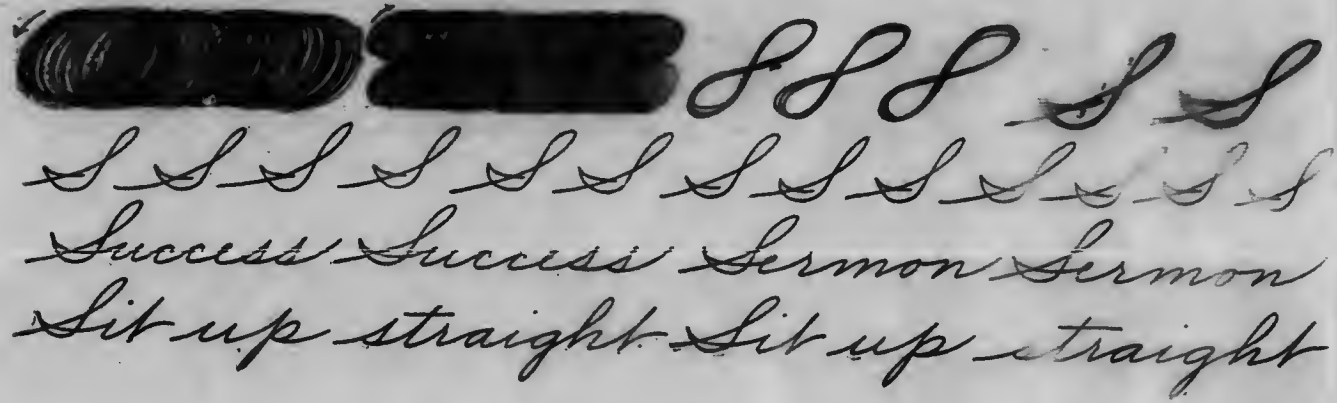 8 8 8 S S
S S S S S S S S S S S S S
Success Success Sermon Sermon
Sit up straight Sit up straight